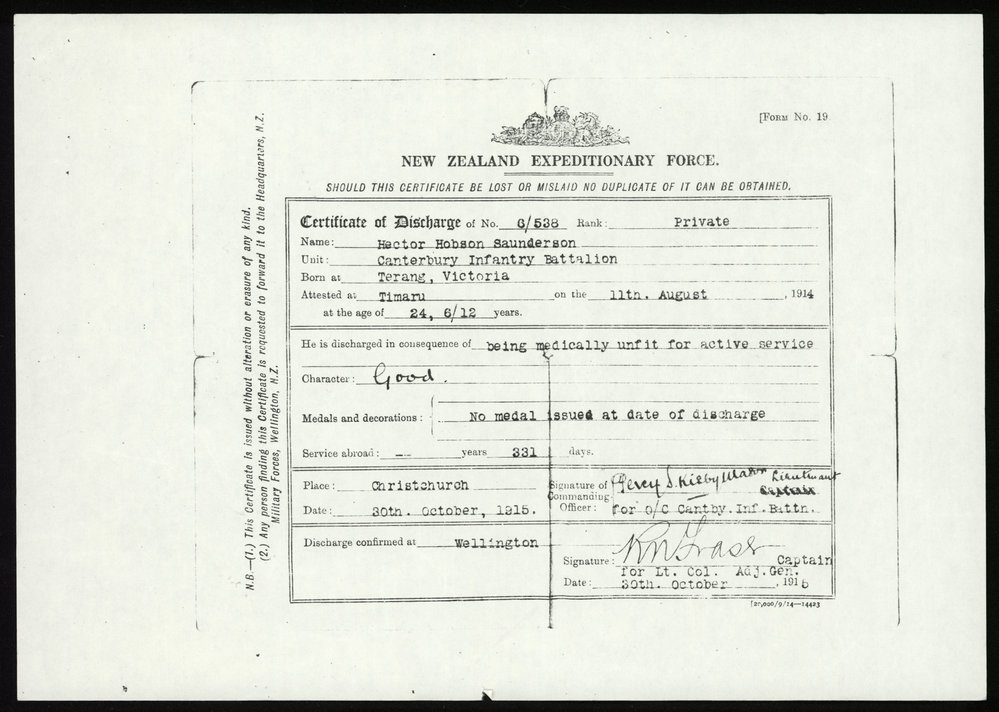 [FORM No. 19
NEW ZEALAND EXPEDITIONARY FORCE.
SHOULD THIS CERTIFICATE BE LOST OR MISLAID NO DUPLICATE OF IT CAN BE OBTAINED.
Certificate of Discharge of No. 6/538 Rank: Private
Name: Hector Hobson Saunderson
Unit: Canterbury Infantry Battalion
Born at Terang, Victoria
Attested at Timaru on the 11th. August, 1914
at the age of 24, 6/12 years.
He is discharged in consequence of being medically unfit for active service
Character: Good.
Medals and decorations: No medal issued at date of discharge
Service abroad: -- years 331 days.
Place: Christchurch
Date: 30th. October, 1915.
Signature of Commanding Officer: Percy S. Kirby Lieutenant
for O/C Cantby. Inf. Battn.
Discharge confirmed at Wellington
Signature: Captain
for Lt. Col. Adj. Gen.
Date: 30th. October, 1915
[20,000/9/14—14423
N.B.—(1.) This Certificate is issued without alteration or erasure of any kind.
(2.) Any person finding this Certificate is requested to forward it to the Headquarters, N.Z.
Military Forces, Wellington, N.Z.